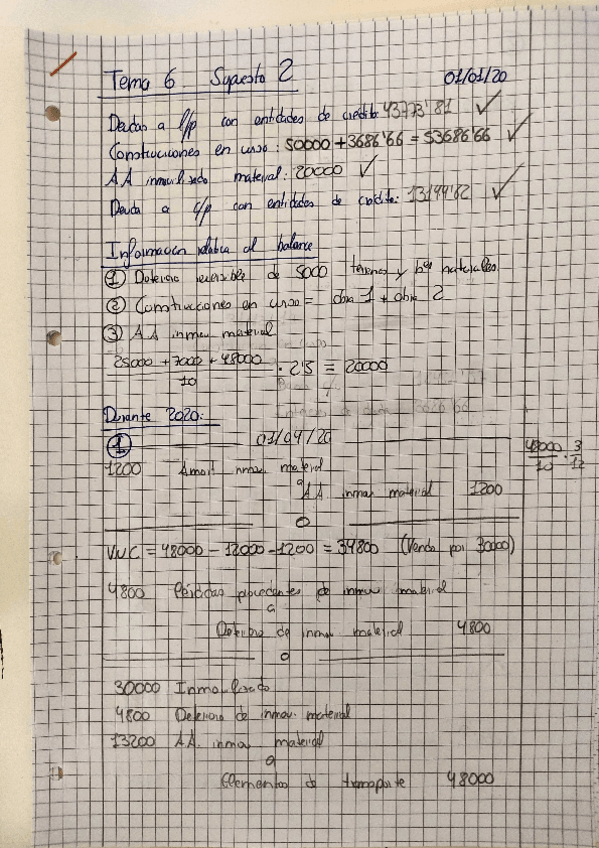 Tema 6 Supuesto 2 01/01/20
Deudas a l/p con entidades de crédito: 43773'81 ✓
Construcciones en curso: 50000 + 3686'66 = 53686'66 ✓
AA inmovilizado material: 20000 ✓
Deuda a c/p con entidades de crédito: 13199'82 ✓
Información relativa al balance
① Deterioro reversible de 5000 terrenos y bº naturales.
② Construcciones en curso = obra 1 + obra 2
③ AA inmov material
25000 + 7000 + 48000 / 10 · 2'5 = 20000
Durante 2020:
① 01/04/20 48000/10 · 3/12
1200 Amort inmov material
a
AA inmov material 1200
VNC = 48000 - 12000 - 1200 = 34800 (Vendo por 30000)
4800 Pérdidas procedentes de inmov material
a
Deterioro de inmov material 4800
30000 Inmovilizado
4800 Deterioro de inmov. material
13200 AA. inmov material
a
Elementos de transporte 48000